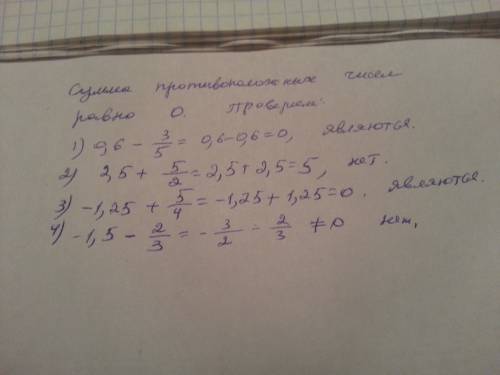 Сумма противоположных чисел
равно 0. Проверяем:
1) 0,6 - 3/5 = 0,6-0,6=0, являются.
2) 2,5 + 5/2 = 2,5+2,5=5, нет.
3) -1,25 + 5/4 = -1,25+1,25=0. являются.
4) -1,5 - 2/3 = - 3/2 - 2/3 ≠0 нет.